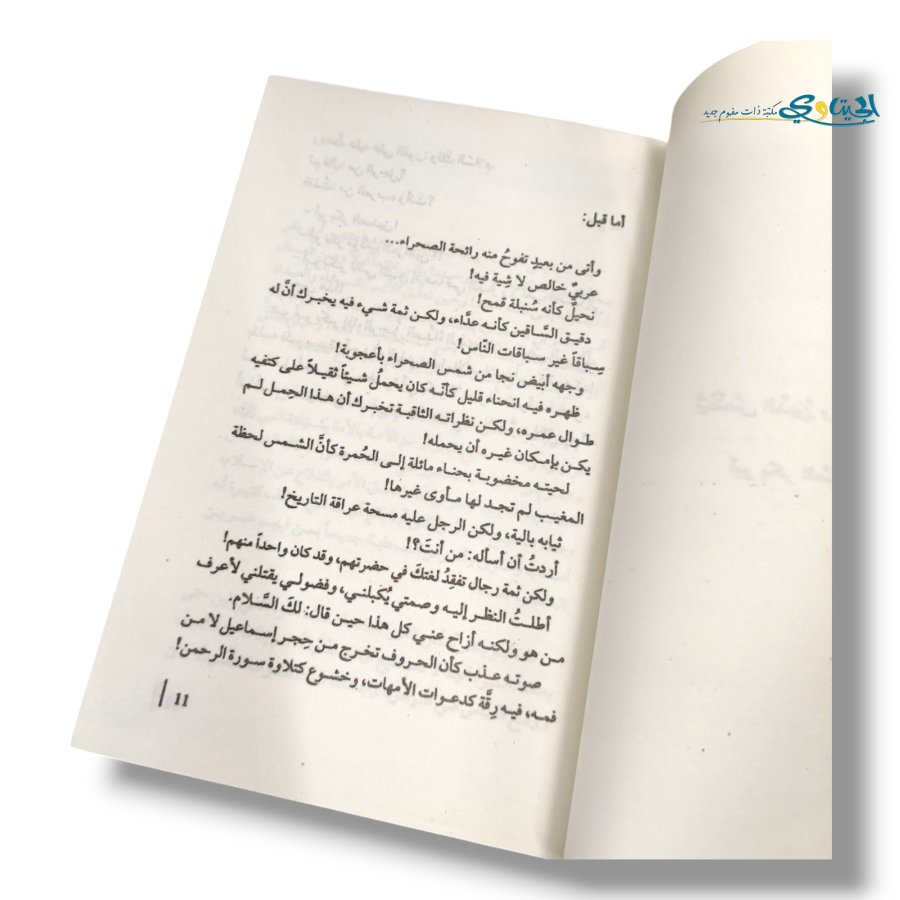 الجيتاوي
مكتبة ذات مفهوم جديد
أما قبل:
وأتى من بعيدٍ تفوحُ منه رائحة الصحراء...
عربيٌ خالص لا شِية فيه!
نحيلٌ كأنه سُنبلة قمح!
دقيق السَّاقين كأنه عدَّاء، ولكن ثمة شيء فيه يخبرك أنَّ له
سِباقاً غير سباقات النّاس!
وجهه أبيض نجا من شمس الصحراء بأعجوبة!
ظهره فيه انحناء قليل كأنّه كان يحملُ شيئاً ثقيلاً على كتفيه
طوال عمره، ولكن نظراته الثاقبة تخبرك أن هذا الحِمل لم
يكن بإمكان غيره أن يحمله!
لحيته مخضوبة بحناء مائلة إلى الحُمرة كأنَّ الشمس لحظة
المغيب لم تجد لها مأوى غيرها!
ثيابه بالية، ولكن الرجل عليه مسحة عراقة التاريخ!
أردتُ أن أسأله: من أنتَ؟!
ولكن ثمة رجال تفقِدُ لغتكَ في حضرتهم، وقد كان واحداً منهم!
أطلتُ النظر إليه وصمتي يُكَبلني، وفضولي يقتلني لأعرف
من هو ولكنه أزاح عني كل هذا حين قال: لكَ السَّلام.
صوته عذب كأن الحروف تخرج من حِجر إسماعيل لا من
فمه، فيه رِقَّة كدعوات الأمهات، وخشوع كتلاوة سورة الرحمن!
11